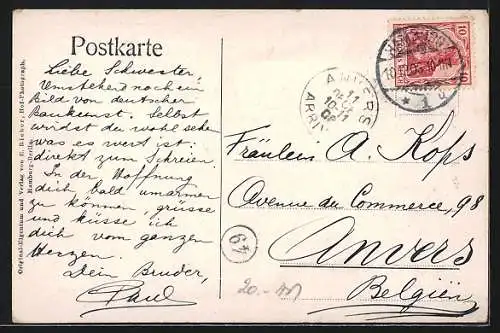 Postkarte
Liebe Schwester,
Umstehend noch ein
Bild von deutscher
Baukunst. Selbst
wirdst du wohl sehen
was es wert ist:
direkt zum Schreien
In der Hoffnung
dich bald umarmen
zu können, grüsse
und küsse ich
dich vom ganzen
Herzen.
Dein Bruder,
Paul
Original-Eigentum und Verlag von E. Bieber, Hof-Photograph.
Hamburg-Berlin.
10 10
ANVERS
11
10-11
ARRIV
* 1
Fräulein A. Kops
Avenue du Commerce, 98
Anvers
Belgien
49
20.-